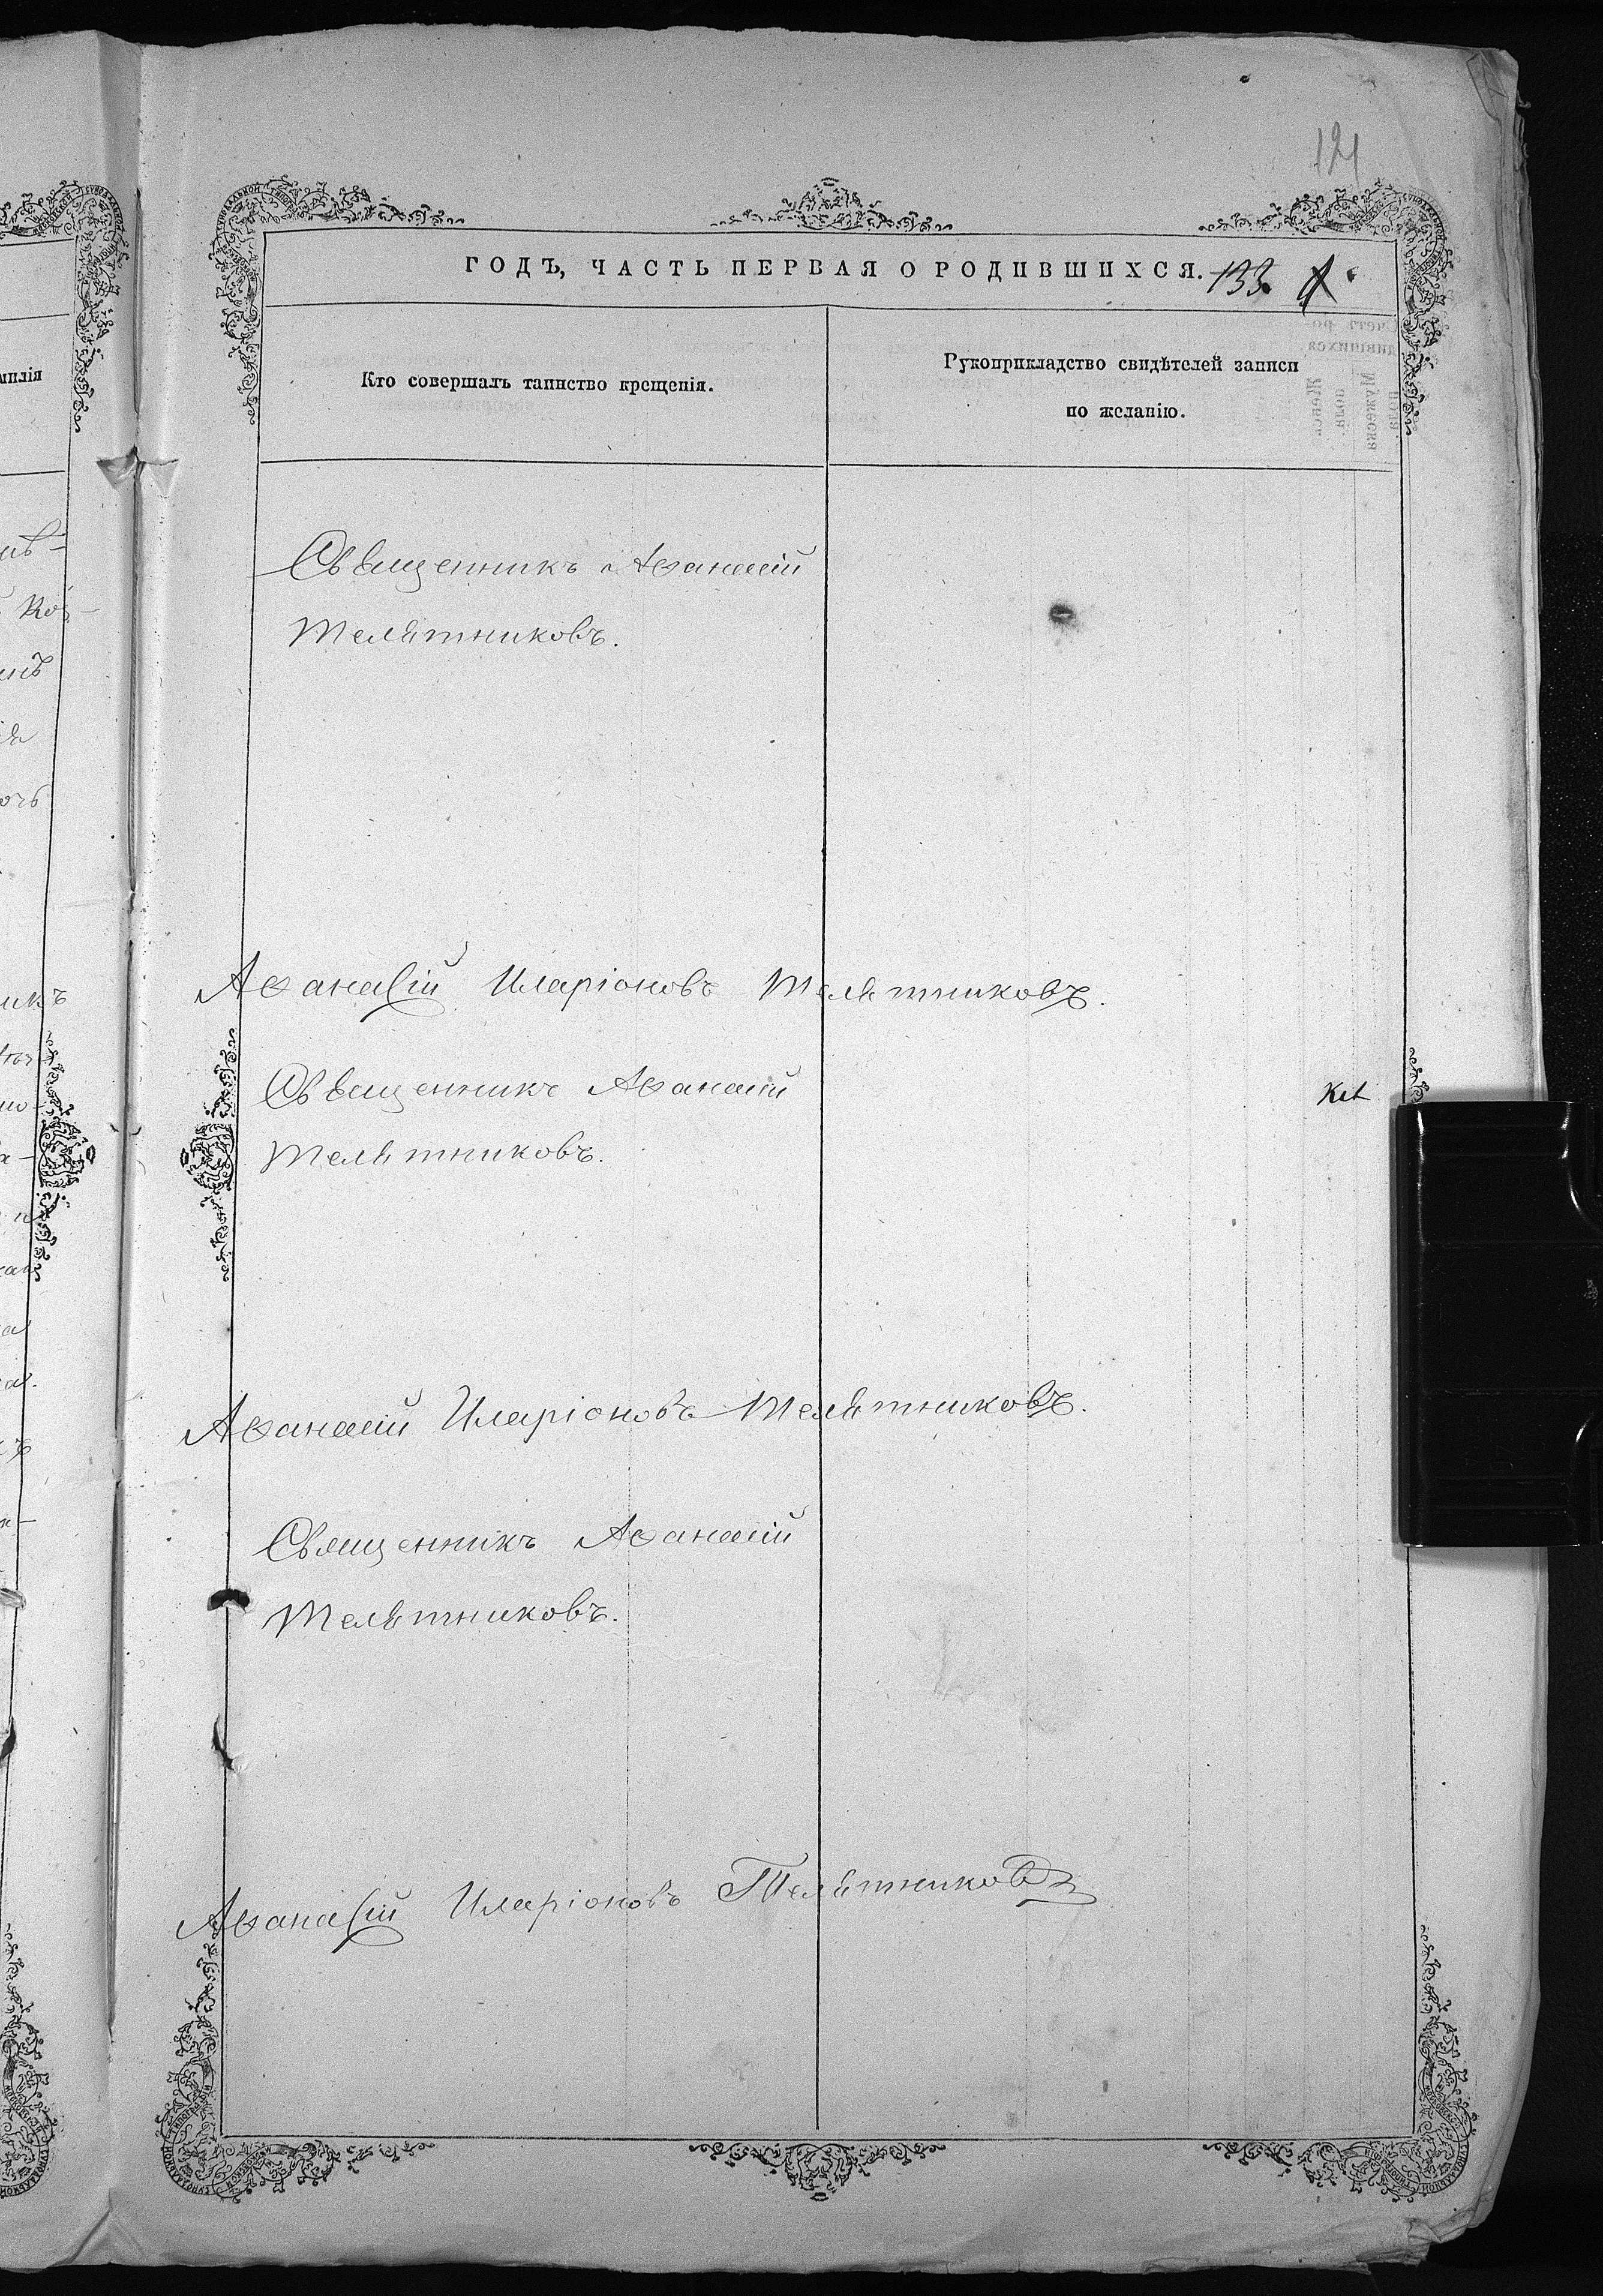 121
ГОДЪ, ЧАСТЬ ПЕРВАЯ О РОДИВШИХСЯ. 133.
Кто совершалъ таинство крещенія.
Рукоприкладство свидѣтелей записи
по желанію.
Священникъ Аѳанасій
Телятниковъ.
Аѳанасій Иларіоновъ Телятниковъ.
Священникъ Аѳанасій
Телятниковъ.
Аѳанасій Иларіоновъ Телятниковъ.
Священникъ Аѳанасій
Телятниковъ.
Аѳанасій Иларіоновъ Телятниковъ